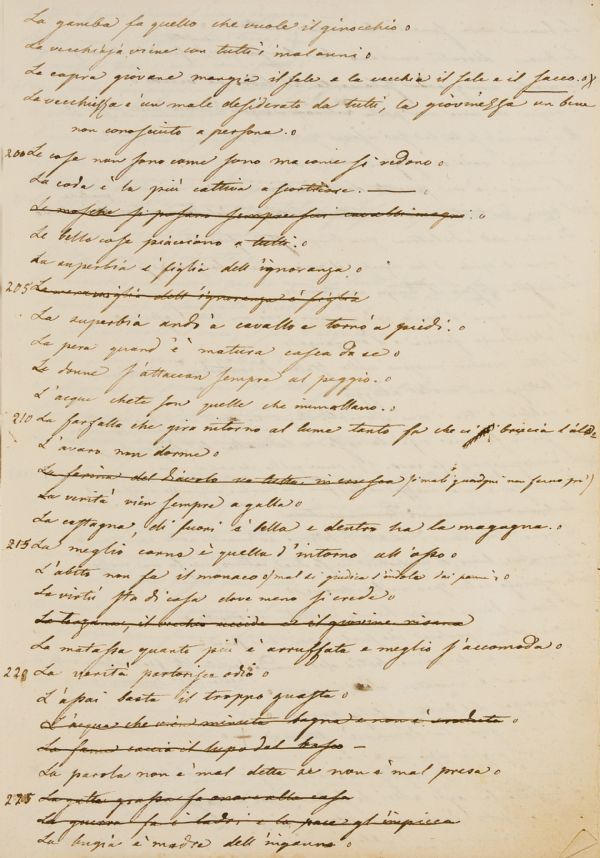 La gamba fa quello che vuole il ginocchio.
La vecchiaja viene con tutti i malanni.
La capra giovane mangia il sale e la vecchia il sale e il sacco.
La vecchiezza è un male desiderato da tutti, la giovinezza un bene
non conosciuto a persona.
200 Le cose non sono come sono ma come si vedono
La coda è la più cattiva a scorticare. —
Le mosche si posano sempre sui cavalli magri.
Le belle cose piacciono a tutti.
La superbia è figlia dell'ignoranza.
205 La meraviglia dell'ignoranza è figlia
La superbia andò a cavallo e tornò a piedi.
La pera quand'è matura casca da se
Le donne s'attaccan sempre al peggio.
L'acque chete son quelle che immollano.
210 La farfalla che gira intorno al lume tanto fa che ci si brucia l'ale
L'avaro non dorme
La farina del diavolo va tutta in crusca
La verità vien sempre a galla
La castagna, di fuori è bella e dentro ha la magagna.
215 La meglio carne è quella d'intorno all'osso
L'abito non fa il monaco
La virtù sta di casa dove meno si crede
il vecchio uccide e il giovine risana
La matassa quanto più è arruffata e meglio s'accomoda
220 La verità partorisce odio
L'assai basta il troppo guasta
L'acqua che vien minuta bagna e non è creduta
La fame caccia il lupo dal bosco —
La parola non è mal detta se non è mal presa
225 La gatta grassa fa onore alla casa
La guerra fa i ladri e la pace gl'impicca
La bugia è madre dell'inganno